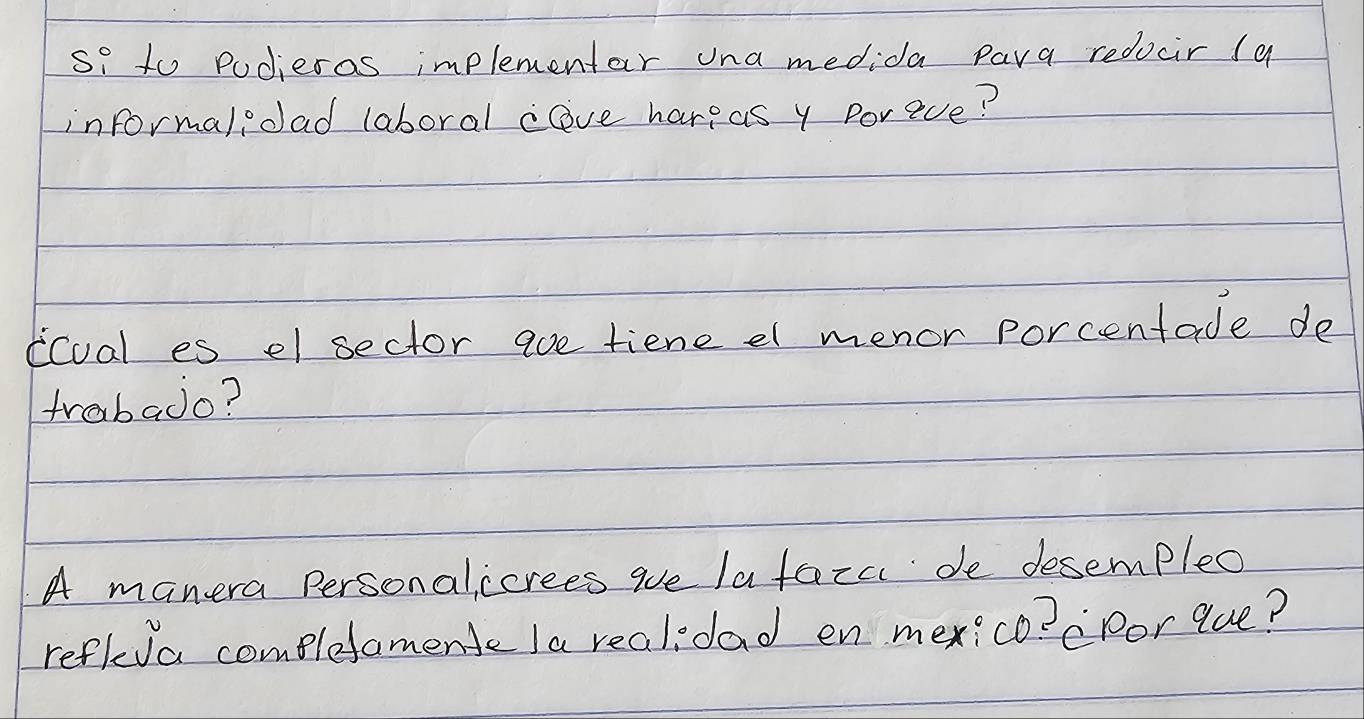 si tu pudieras implementar una medida para reducir la
informalidad laboral ¿Que harias y por que?
¿cual es el sector que tiene el menor porcentaje de
trabajo?
A manera personal,¿crees que la taza de desempleo
refleja completamente la realidad en mexico? ¿por que?